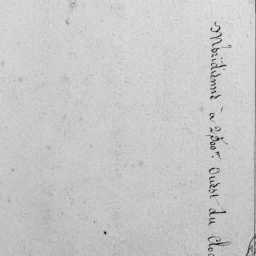 Méridienne à 2,500m Ouest du